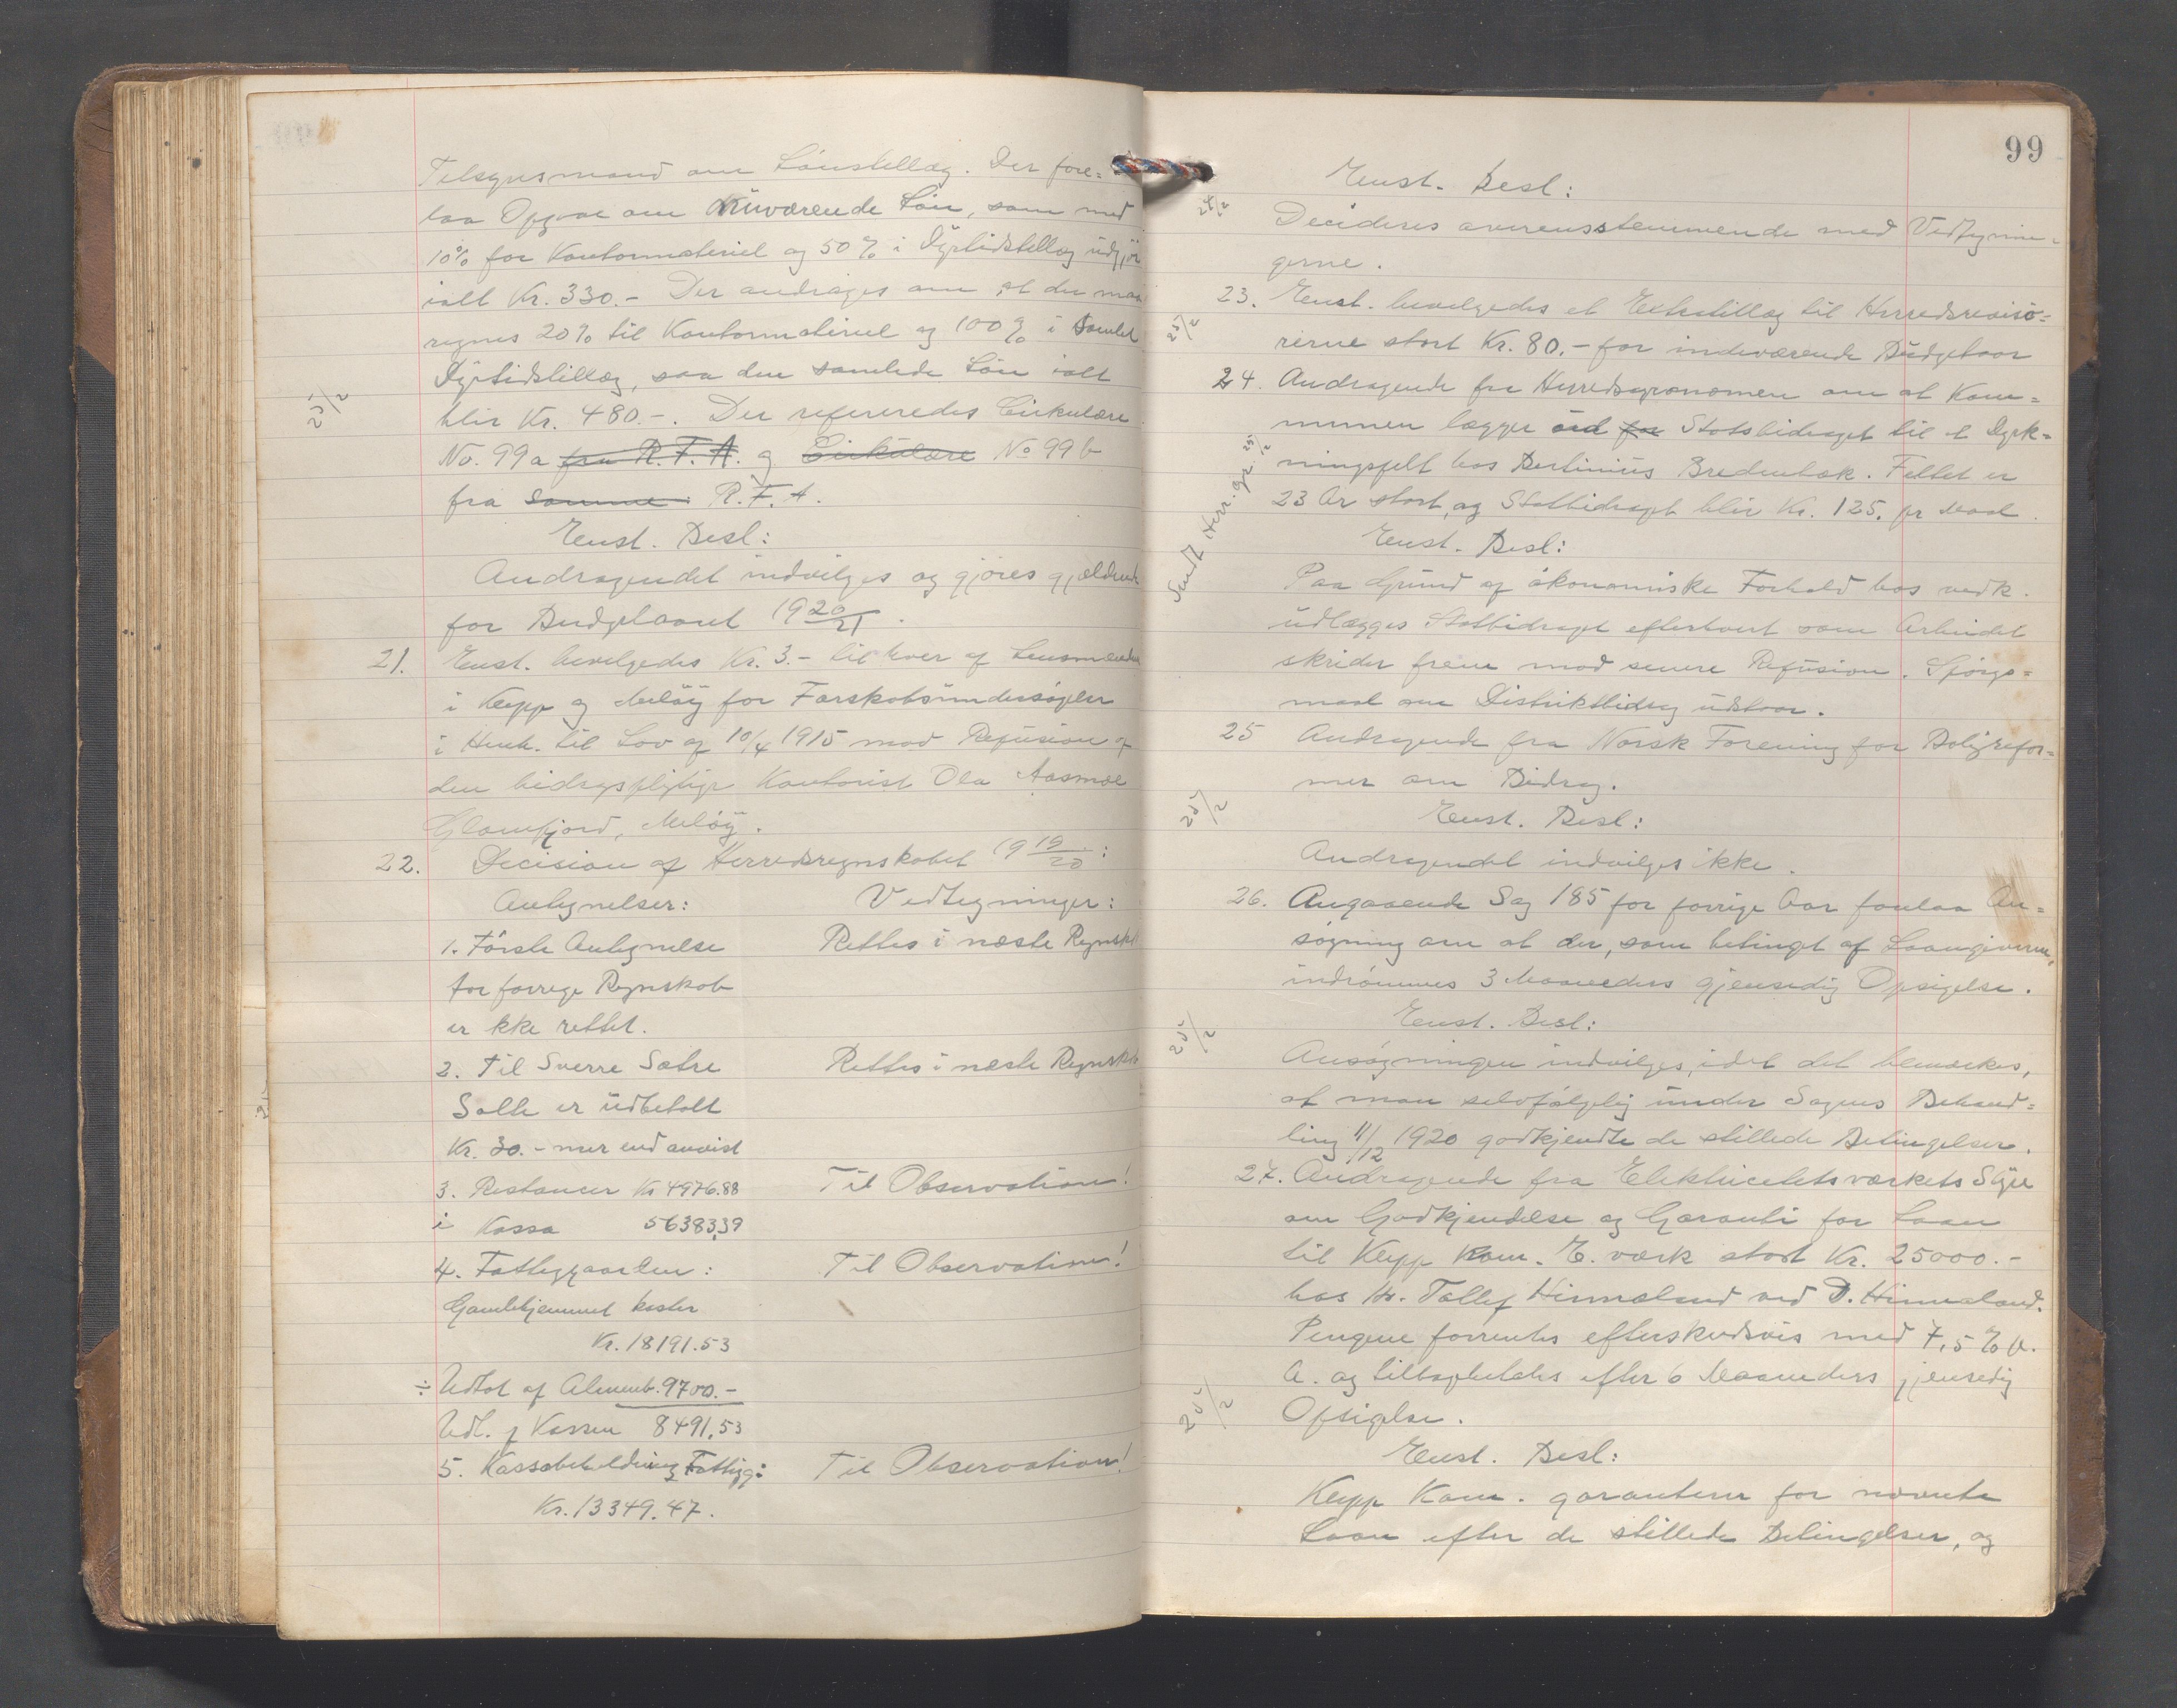 Tilsynsmand om Lønstillæg. Der fore=
laa Opgave om Nuværende Løn, som med
10% for Kontormateriel og 50% i Dyrtidstillæg udgjør
ialt Kr. 330.- Der andrages om at der maa
regnes 20% til Kontormateriel og 100% i Samlet
Dyrtidstillæg, saa den samlede Løn ialt
25/2
blir Kr. 480.-. Der refereredes Cirkulære
No. 99a fra R.F.A. og Cirkulære No 99b
fra samme R.F.A.
Enst. Besl:
Andragendet indvilges og gjøres gjældende
for Budgetaaret 1920/21.
21. Enst. bevilgedes Kr. 3.- til hver af Lensmændene
i Klepp og Meløy for Farskabsundersøgelser
i Henh. til Lov af 10/4 1915 mod Refusion af
den bidragspligtige Kontorist Ola Aasmoe
Glomfjord, Meløy.
22. Decision af Herredsregnskabet 1919/20:
Antegnelser: Vedtegninger:
1. Første Antegnelse Rettes i næste Regnskab
for forrige Regnskab
er ikke rettet.
2. Til Sverre Sætre Rettes i næste Regnskab
Salte er udbetalt
Kr. 30.- mer end anvist
3. Restancer Kr 4976.88 Til Observation!
i Kassa 56383,39
4. Fattiggaarden: Til Observation!
Gamlehjemmet koster
Kr. 18191.53
÷ Udtat af Almenb. 9700.-
Udl. af Kassen 8491,53
5. Kassabeholdning Fattigg: Til Observation!
Kr. 13349.47.
99
Enst. Besl:
24/2
Decideres overensstemmende med Vedtegnin=
gerne.
23. Enst. bevilgedes et Extratillæg til Herredsreviso=
25/2
rerne stort Kr. 80.- for indeværende Budgetaar
24. Andragende fra Herredsagronomen om at Kom=
munen lægger ud for Statsbidraget til et Dyrk=
ningsfelt hos Bertinius Bredenbæk. Feltet er
23 Ar stort, og Statsbidraget blir Kr. 125. pr Maal.
Sendt Herr. agr. 25/2
Enst. Besl:
Paa Grund af økonomiske Forhold hos vedk.
udlægges Statsbidraget efterhvert som Arbeidet
skrider frem mod senere Refusion. Spørgs=
maal om Distriktsbidrag udstaar.
25 Andragende fra Norsk Forening for Boligrefor=
mer om Bidrag.
25/2
Enst. Besl:
Andragendet indvilges ikke.
26. Angaaende Sag 185 for forrige Aar forelaa An=
søgning om at der, som betinget af Laangiveren,
indrømmes 3 Maaneders gjensidig Opsigelse.
25/2
Enst. Besl:
Ansøgningen indvilges, idet det bemærkes,
at man selvfølgelig under Sagens Behand=
ling 11/12 1920 godkjendte de stillede Betingelser.
27. Andragende fra Elektricitetsværkets Styre
om Godkjendelse og Garanti for Laan
til Klepp Kom. E. værk stort Kr. 25000.-
hos Hr. Tollef Hinnaland ved D. Hinnaland.
Pengene forrentes efterskudsvis med 7,5% p.
A. og tilbagebetales efter 6 Maaneders gjensidig
25/2
Opsigelse.
Enst. Besl:
Klepp Kom. garanterer for nævnte
Laan efter de stillede Betingelser, og